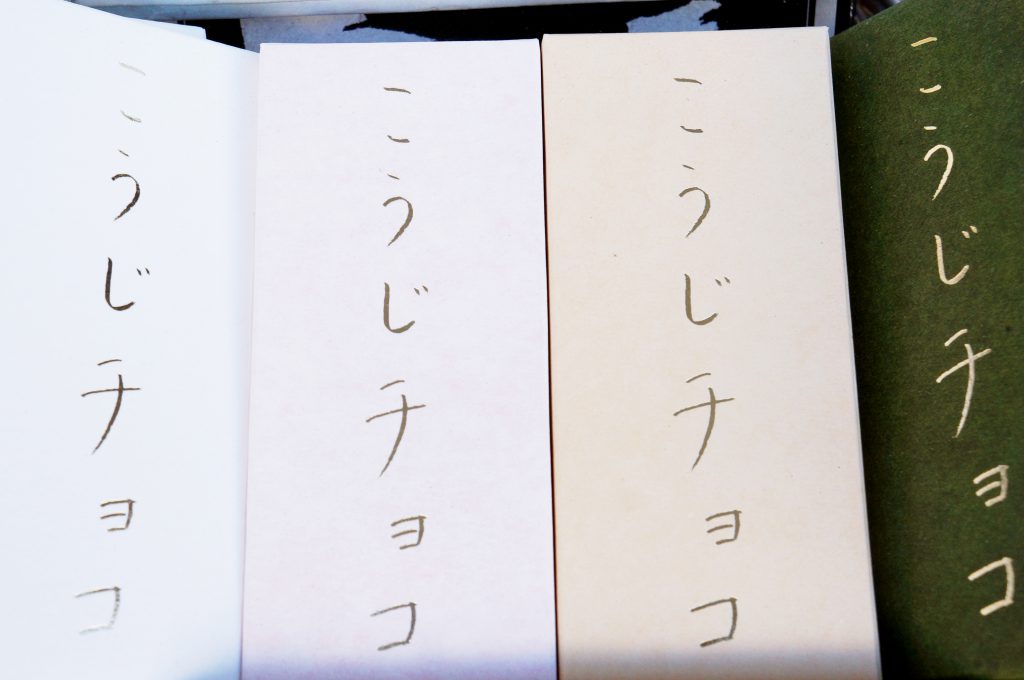 こうじチョコ
こうじチョコ
こうじチョコ
こうじチョコ